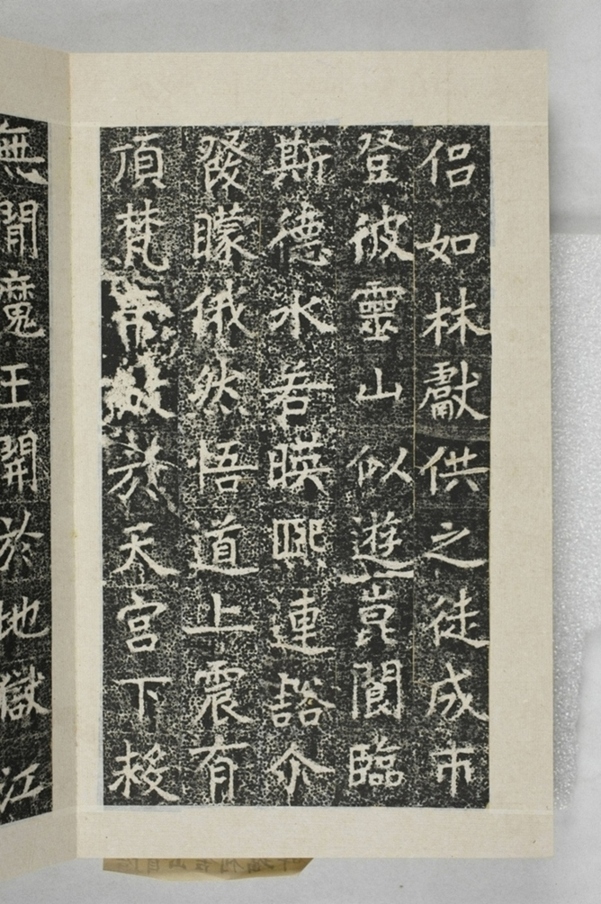 侶如林獻供之徒成市
登彼靈山似遊崑閬臨
斯德水若暎熙連豁尒
發矇俄然悟道上震有
頂梵帝於天宮下
無閒魔王開於地獄江